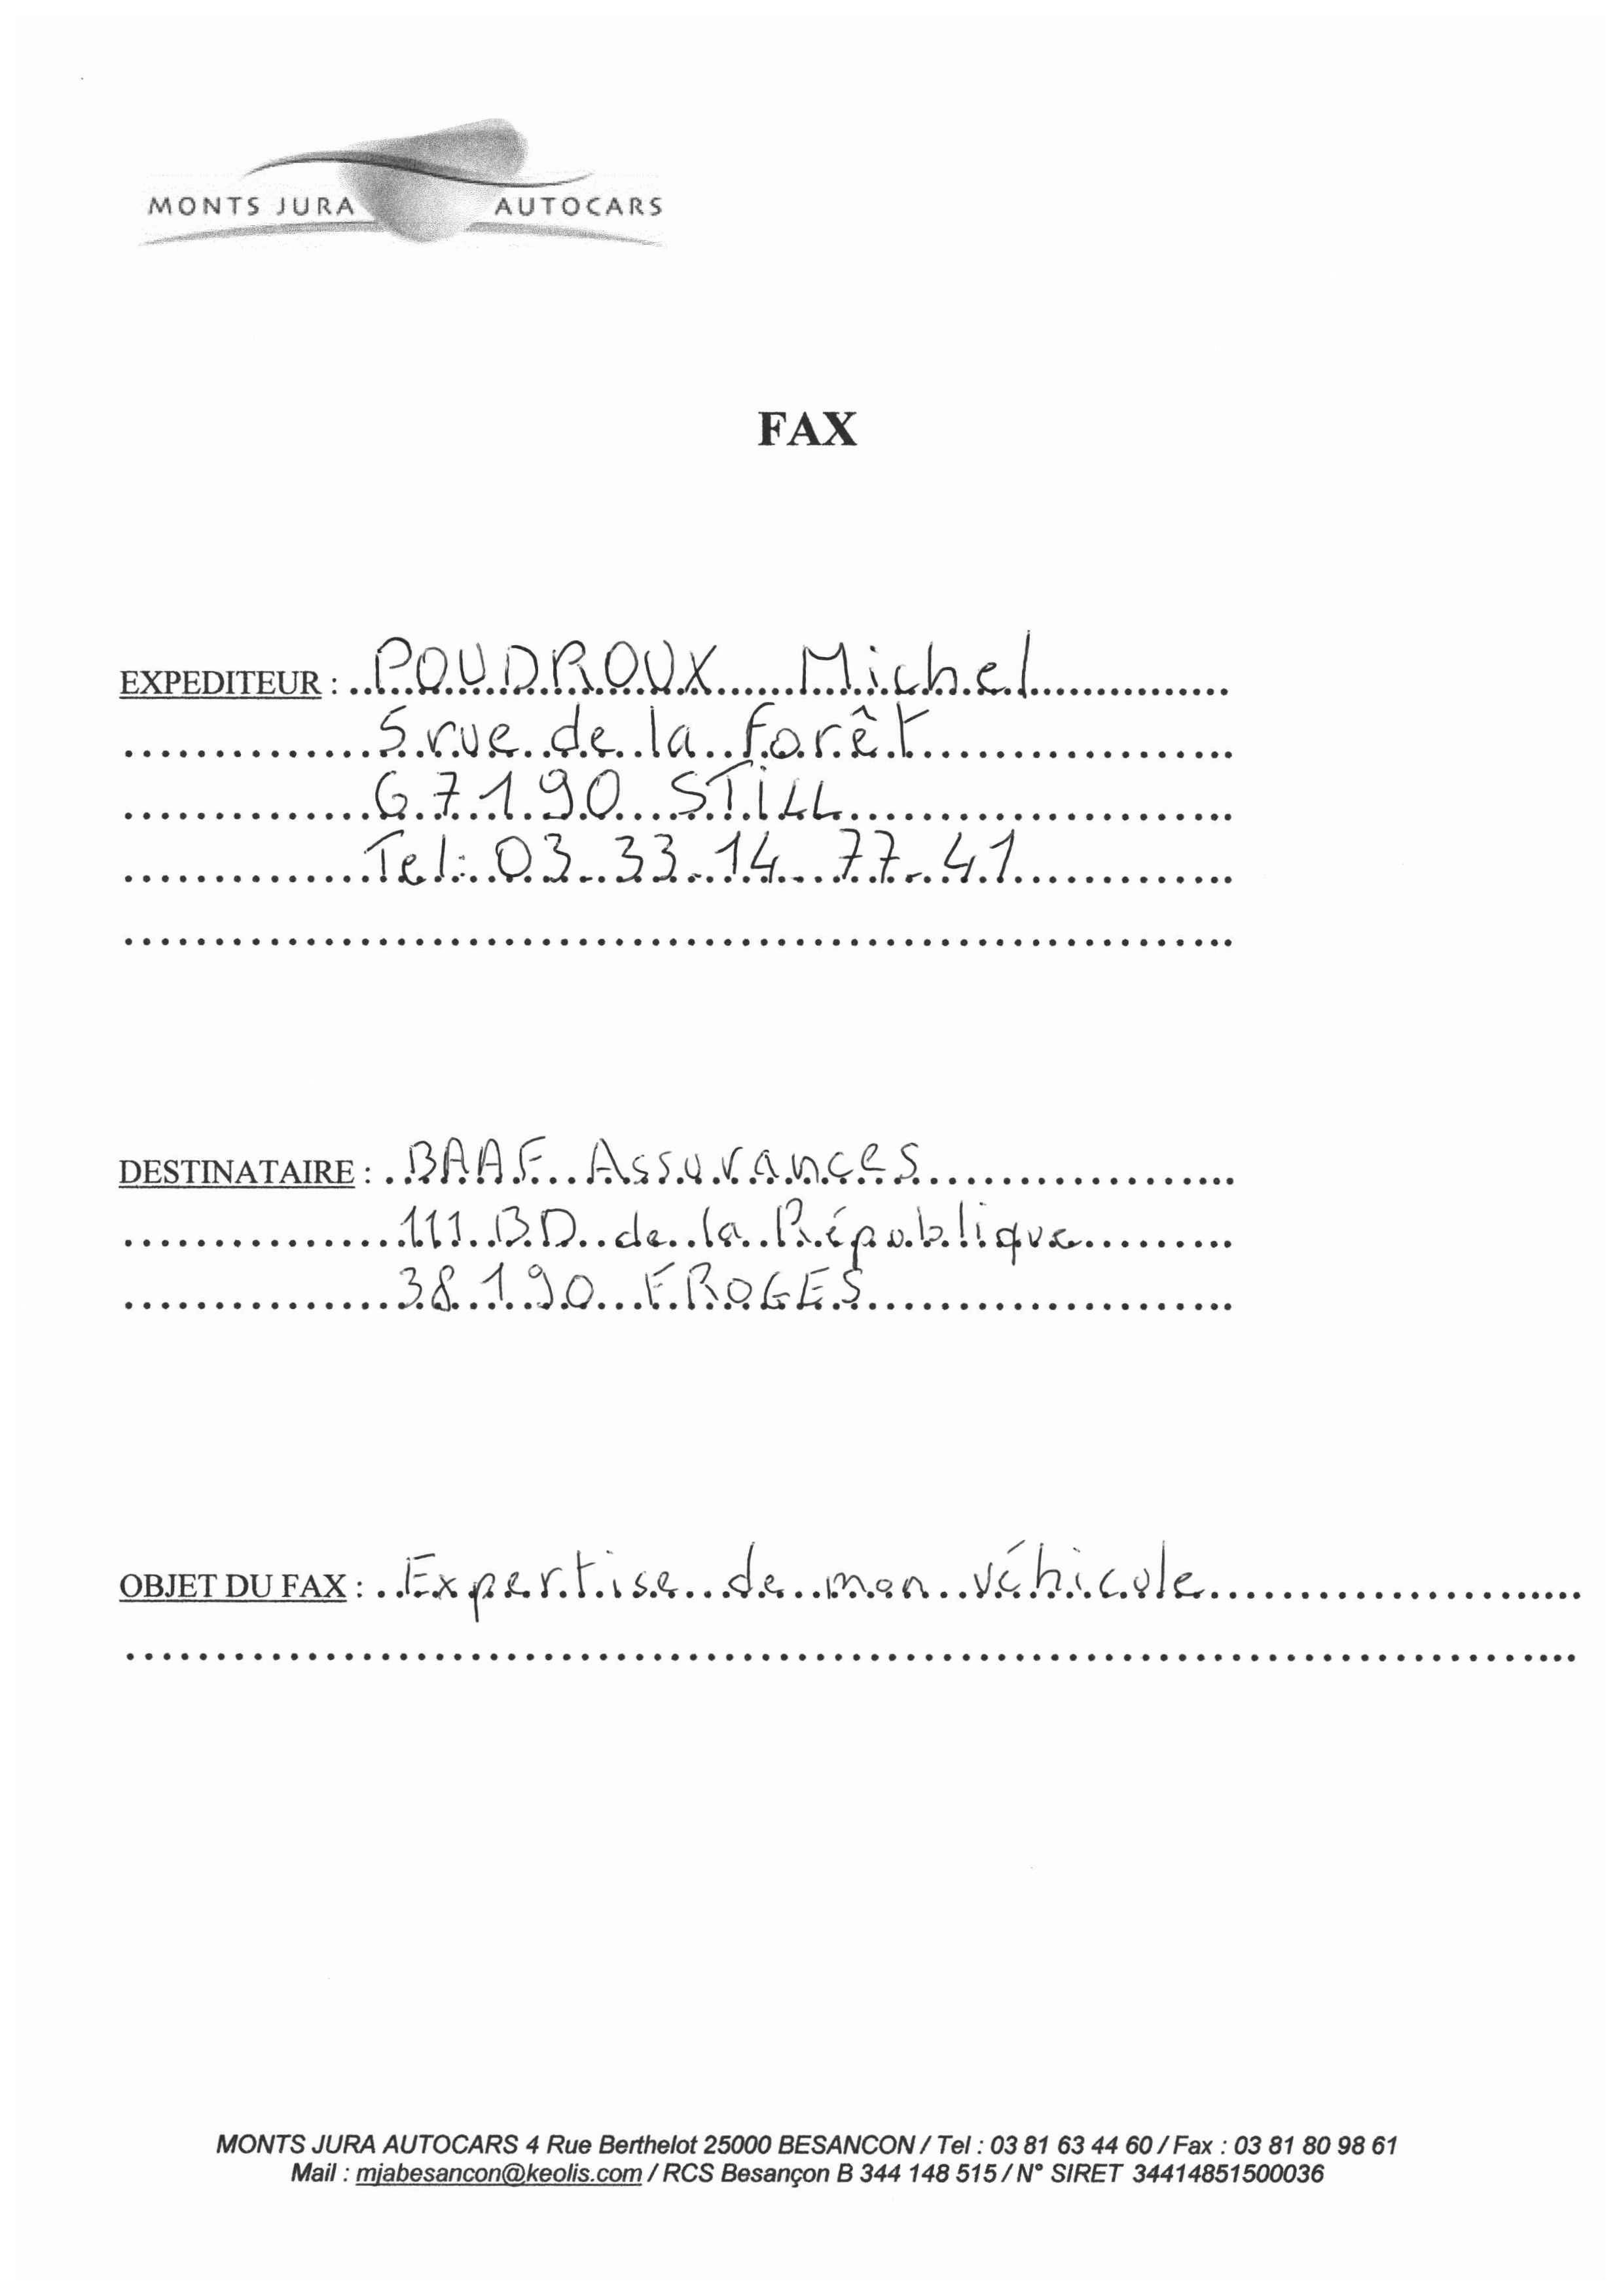 MONTS JURA AUTOCARS
FAX
EXPEDITEUR : POUDROUX Michel
5 rue de la forêt
67190 STiLL
Tel: 03 33 14 77 41
DESTINATAIRE : BAAF Assurances
111 BD de la République
38190 FROGES
OBJET DU FAX : Expertise de mon véhicule
MONTS JURA AUTOCARS 4 Rue Berthelot 25000 BESANCON / Tel : 03 81 63 44 60 / Fax : 03 81 80 98 61
Mail : mjabesancon@keolis.com / RCS Besançon B 344 148 515 / N° SIRET 34414851500036